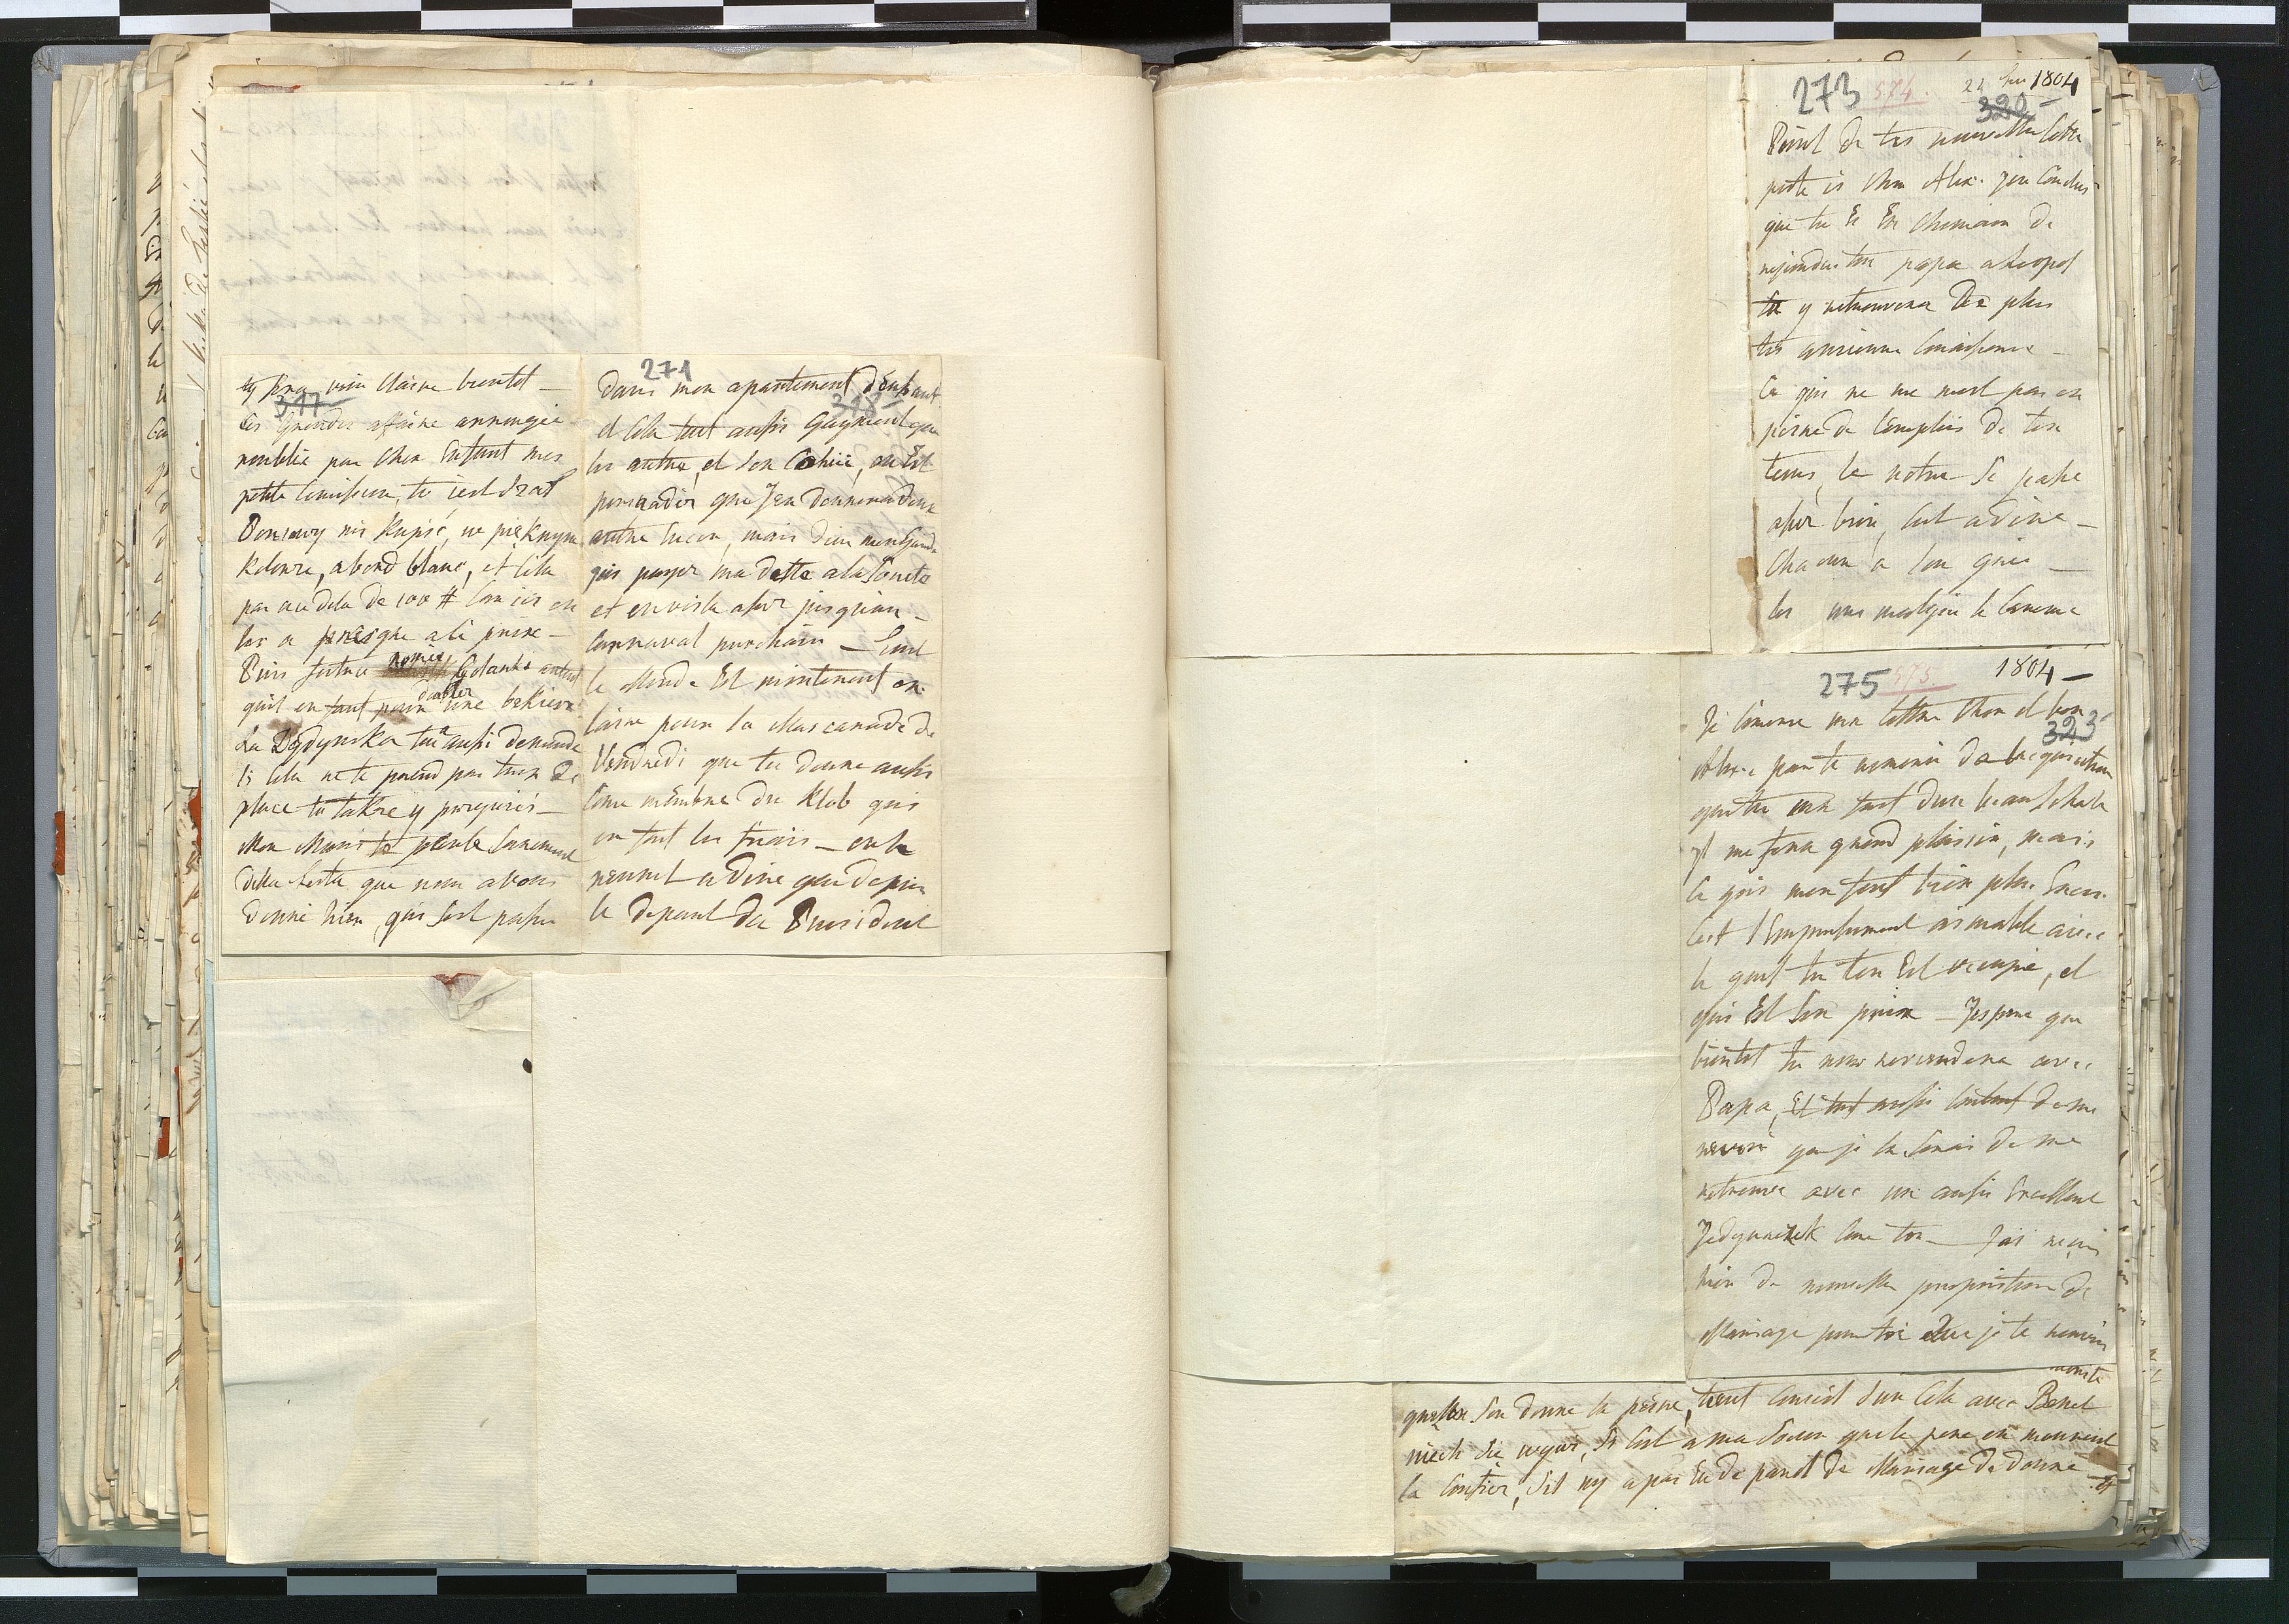 317
ces grandes affaire arrangée
noublie pas cher Enfant mes
petite Comission, to jest szal
Ponsowy nis kupić, w pięknym
Kolorze, abord blanc, et cela
par au dela de 100 # Com ici on
les a presque a ce prix —
Puis futro Gdanki autant
quil en faut pour doubler une bekiesse
La Dydynska ta aussi demandé
Si cela ne te prend pas trop de
place
Mon Mari te parle surement
della festa que nous avons
donné hier, qui sest passée
271
318
Dans mon apartement Denhaut
et cela tout aussi Gayment que
les autre, et son Cohüe, on Est
persuader que Jen donnerai deux
autre Encor, mais dieu men Garde
jai payer ma dette a la Societe
et en voila assez jusquau
Carnaval prochain — tout
le Monde Est maintenant en
lair pour la Mascarade de
Vendredi que tu donne aussi
Come membre du Klub qui
en fait les frais — on le
renuet a dire que depui
le depart du President
273 574. 1804
320
Point de tes nouvelle Cette
poste ci cher Alex. jen Conclus
que tu Es En chemain de
rejoindre ton papa a Leopol
tu y retrouvera De plus
tes ancienne Connaissance —
Ce qui ne me met pas en
peine de Lemplois de ton
tems, le notre se passe
assez bien, cest a dire —
Chacun a son grée —
les uns malgré le Careme
275 575. 1804 —
323
Je Comence ma lettre Cher et bon
Alexe par te remercier de Lacquisition
que tu ma fait dun beau Schale
il me fera grand plaisir, mais
Ce qui men fait bien plus Encor
Cest l'Empressement aimable avec
le quel tu ten Est occupé, et
qui Est son prix — Jespere que
bientot tu nous reviendera avec
Papa, Et tout aussi Content de me
revoir que je le serais de me
retrouver avec un aussi Excellent
Jedynaczek Come toi — Jai reçu
hier de nouvelle proposition de
Mariage pour toi Que je te
quelle Son donne la peine, tient Conseil sur Cela avec Benet
niech Się, Si Cest a ma Soeur que le pere en mourant
la Confier, Sil ny a pas Eu de parol de Mariage de donné